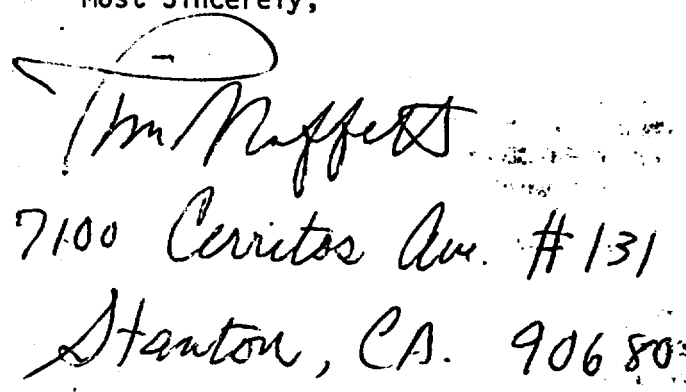 Most Sincerely,
Tim Moffett
7100 Cerritos Ave. #131
Stanton, CA. 90680